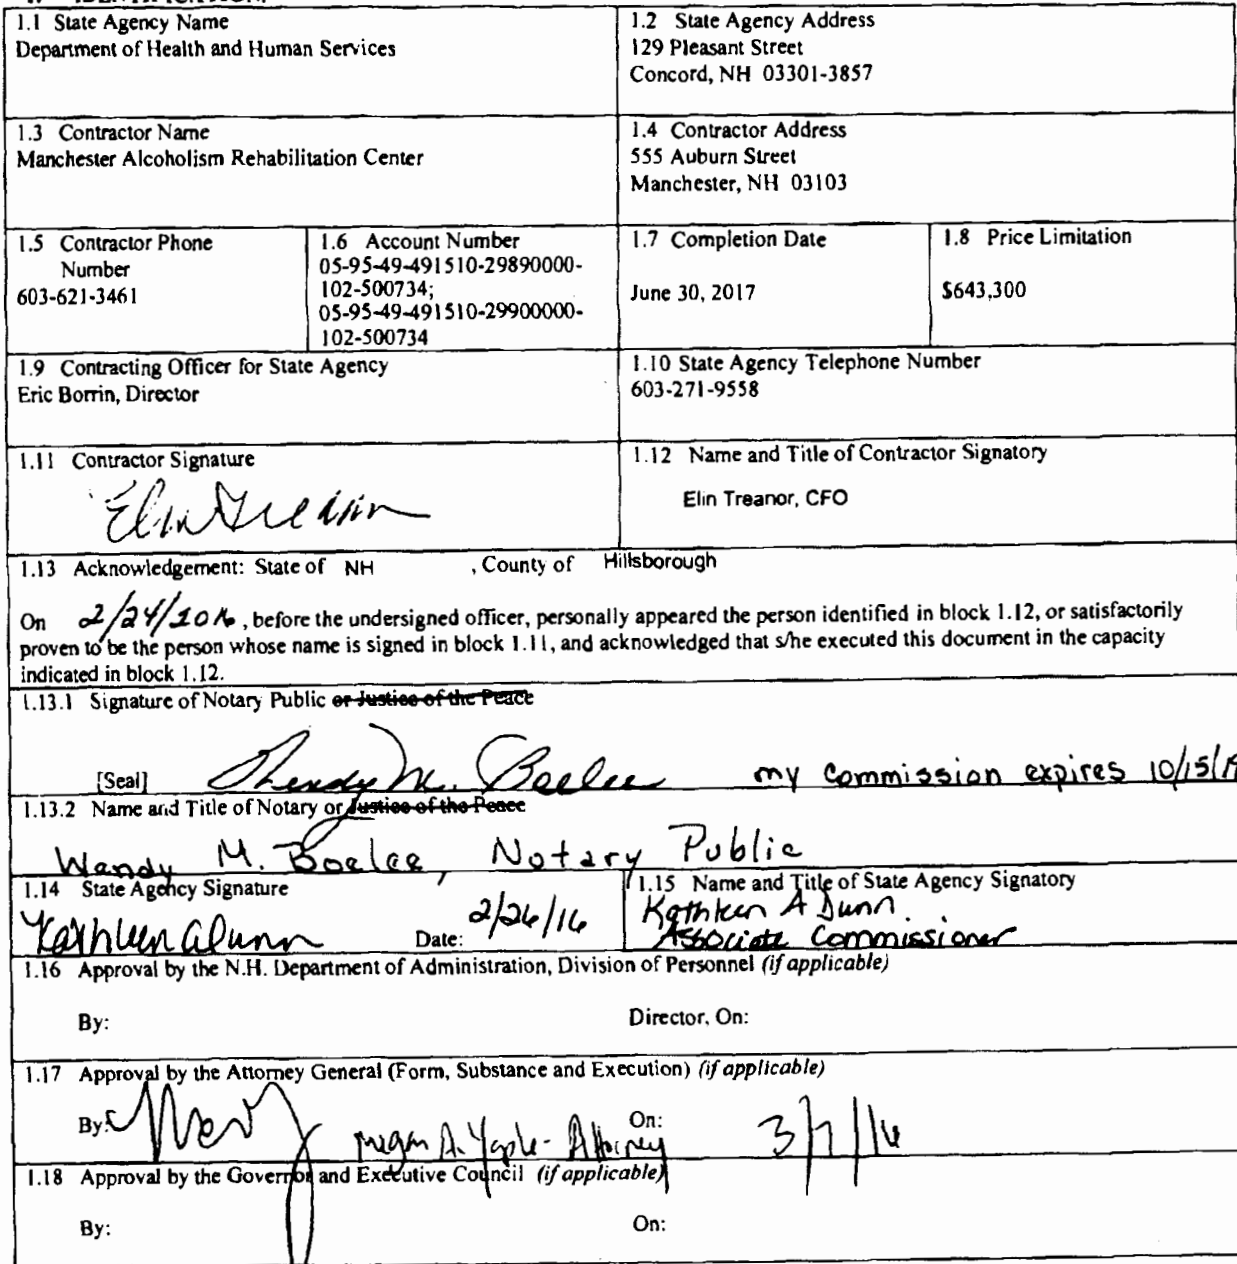 1.1 State Agency Name
Department of Health and Human Services
1.2 State Agency Address
129 Pleasant Street
Concord, NH 03301-3857
1.3 Contractor Name
Manchester Alcoholism Rehabilitation Center
1.4 Contractor Address
555 Auburn Street
Manchester, NH 03103
1.5 Contractor Phone
Number
603-621-3461
1.6 Account Number
05-95-49-491510-29890000-
102-500734;
05-95-49-491510-29900000-
102-500734
1.7 Completion Date
June 30, 2017
1.8 Price Limitation
$643,300
1.9 Contracting Officer for State Agency
Eric Borrin, Director
1.10 State Agency Telephone Number
603-271-9558
1.11 Contractor Signature
Elin Treanor
1.12 Name and Title of Contractor Signatory
Elin Treanor, CFO
1.13 Acknowledgement: State of NH , County of Hillsborough
On 2/24/2016, before the undersigned officer, personally appeared the person identified in block 1.12, or satisfactorily
proven to be the person whose name is signed in block 1.11, and acknowledged that s/he executed this document in the capacity
indicated in block 1.12.
1.13.1 Signature of Notary Public or Justice of the Peace
[Seal] M. Boelee my commission expires 10/15/
1.13.2 Name and Title of Notary or Justice of the Peace
Wendy M. Boelee, Notary Public
1.14 State Agency Signature
Kathleen A Dunn Date: 2/26/16
1.15 Name and Title of State Agency Signatory
Kathleen A Dunn.
Associate Commissioner
1.16 Approval by the N.H. Department of Administration, Division of Personnel (if applicable)
By: Director, On:
1.17 Approval by the Attorney General (Form, Substance and Execution) (if applicable)
By: Megan A. Yaple - Attorney On: 3/7/16
1.18 Approval by the Governor and Executive Council (if applicable)
By: On: